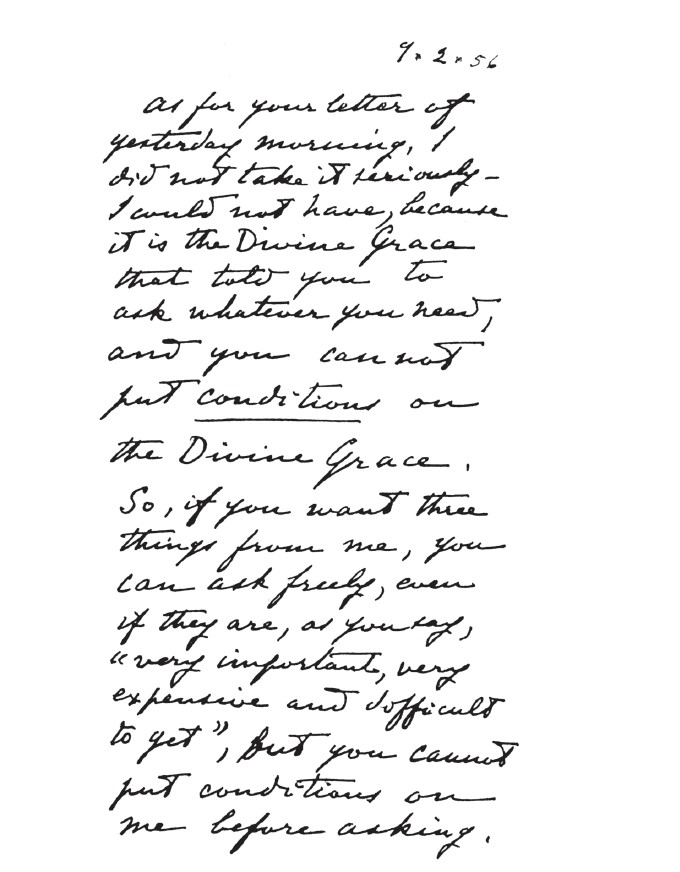 9.2.56
As for your letter of
yesterday morning, I
did not take it seriously –
I could not have, because
it is the Divine Grace
that told you to
ask whatever you need,
and you can not
put conditions on
the Divine Grace.
So, if you want three
things from me, you
can ask freely, even
if they are, as you say,
"very important, very
expensive and difficult
to get", but you cannot
put conditions on
me before asking.